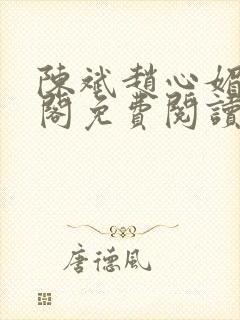 陳斌趙心媚
閣免費閱讀
唐德風